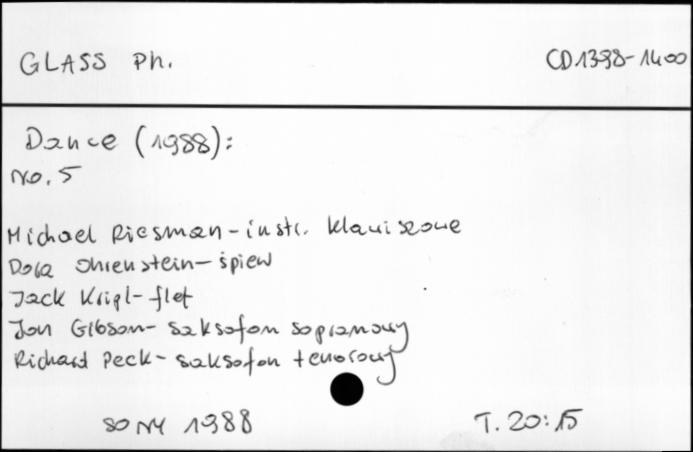 GLASS Ph. CD1398-1400
Dance (1988):
no. 5
Michael Riesman - instr. klawiszowe
Dora Ohrenstein - śpiew
Jack Kripl - flet
Jon Gibson - saksofon sopranowy
Richard Peck - saksofon tenorowy
SONY 1988 T. 20:15